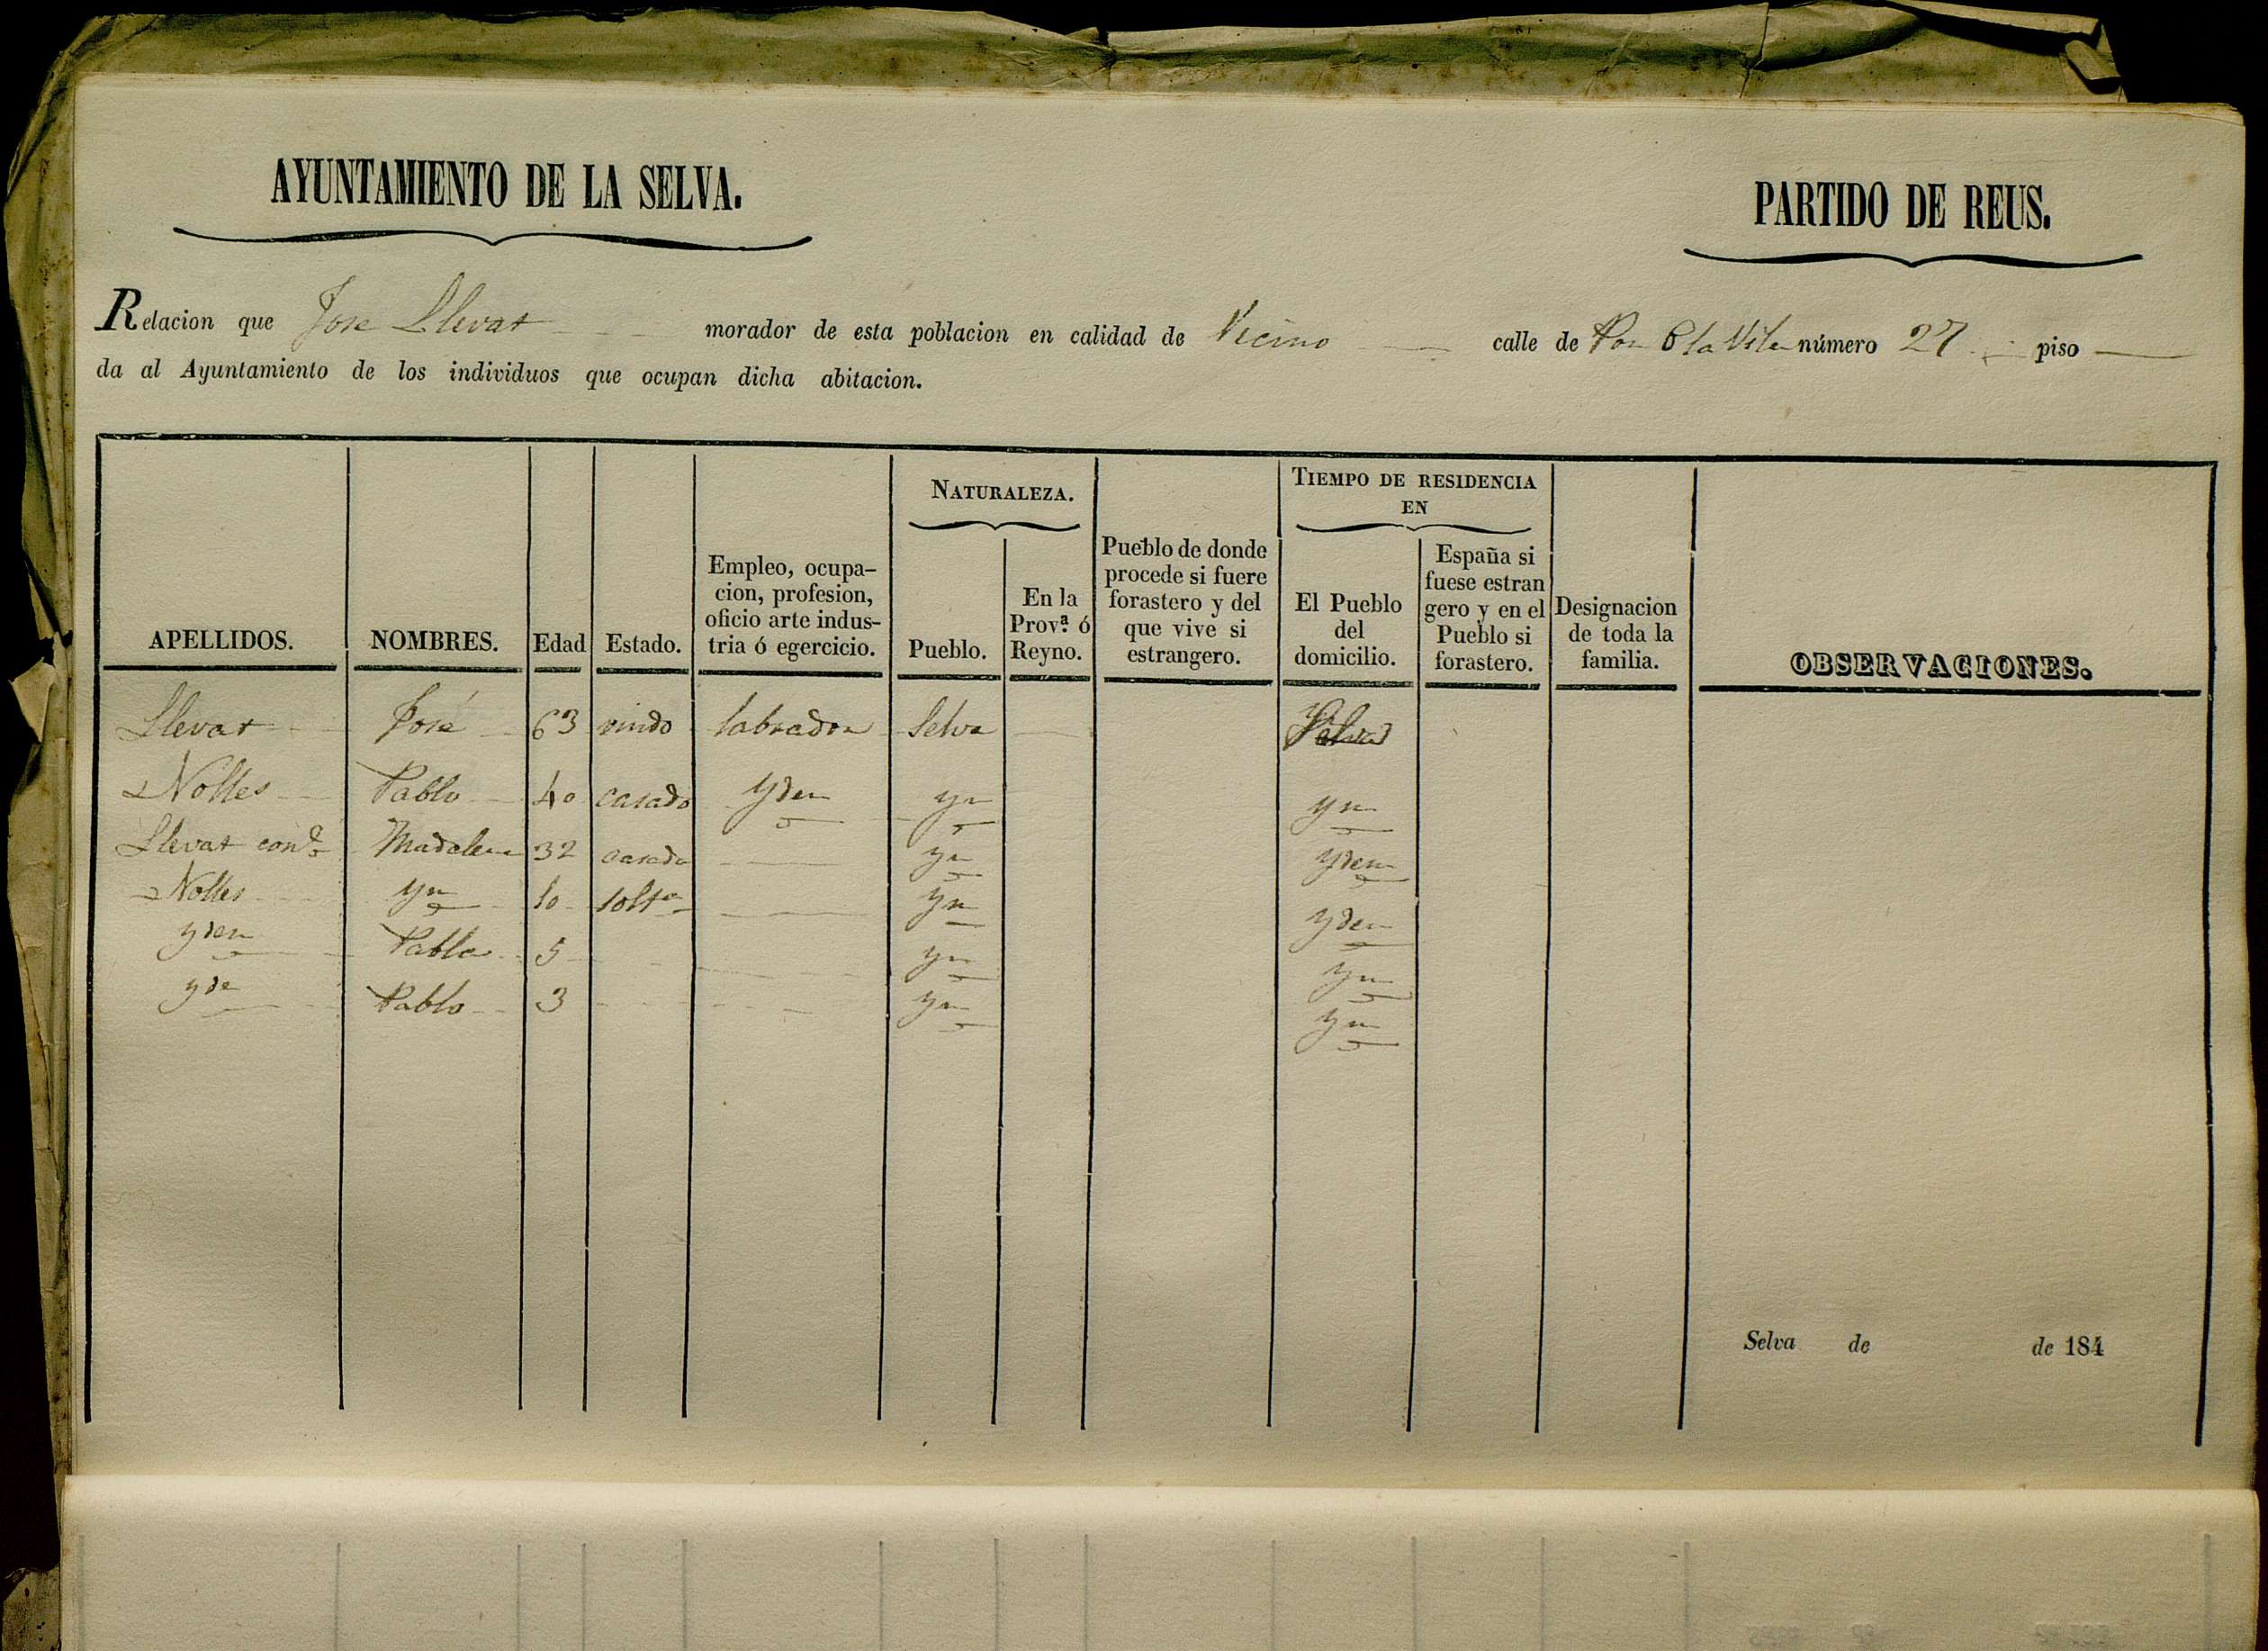 AYUNTAMIENTO DE LA SELVA.
PARTIDO DE REUS.
Relacion que Jose Llevat morador de esta poblacion en calidad de Vecino calle de número 27 piso
da al Ayuntamiento de los individuos que ocupan dicha abitacion.
APELLIDOS. NOMBRES. Edad Estado. Empleo, ocupa-
cion, profesion,
oficio arte indus-
tria ó egercicio.
NATURALEZA.
Pueblo. En la
Prov.ª ó
Reyno.
Pueblo de donde
procede si fuere
forastero y del
que vive si
estrangero.
TIEMPO DE RESIDENCIA
EN
El Pueblo
del
domicilio.
España si
fuese estran
gero y en el
Pueblo si
forastero.
Designacion
de toda la
familia.
OBSERVACIONES.
Llevat José 63 viudo labrador Selva
Nolles Pablo 40 casado yden yn yn
Llevat con Madalena 32 casada yn yden
Nolles yn 10 solta yn yden
yden Pabla 5 yn yn
yde Pablo 3 yn yn
Selva de de 184